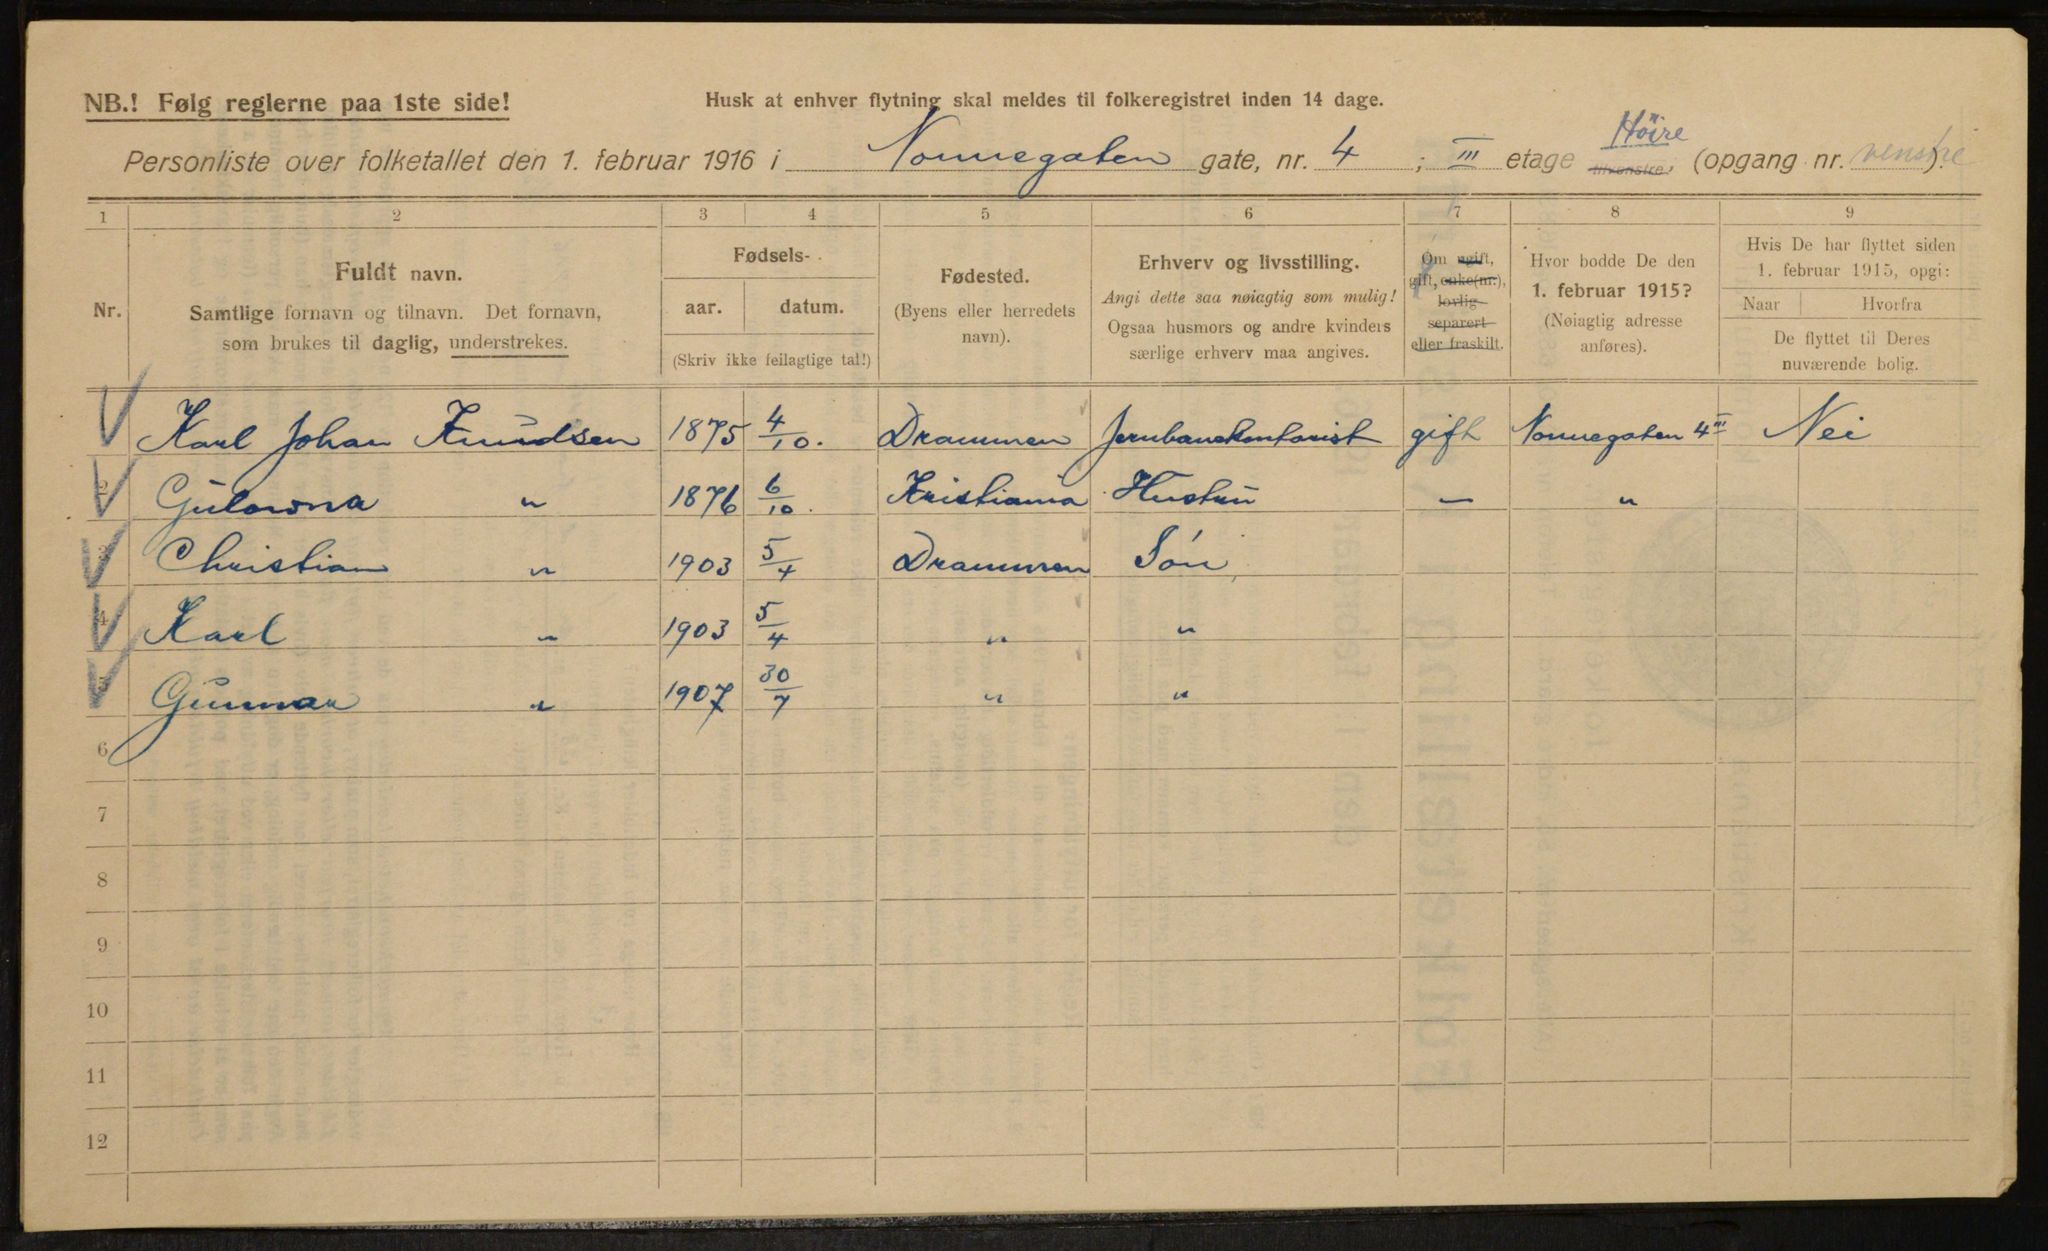 NB.! Følg reglerne paa 1ste side!
Husk at enhver flytning skal meldes til folkeregistret inden 14 dage.
Høire
Personliste over folketallet den 1. februar 1916 i Nonnegaten gate, nr. 4 ; III etage tilvenstre, (opgang nr. venstre).
1 2 3 4 5 6 7 8 9
Nr.
Fuldt navn.
Samtlige fornavn og tilnavn. Det fornavn,
som brukes til daglig, understrekes.
Fødsels-
aar. datum.
(Skriv ikke feilagtige tal!)
Fødested.
(Byens eller herredets
navn).
Erhverv og livsstilling.
Angi dette saa nøiagtig som mulig!
Ogsaa husmors og andre kvinders
særlige erhverv maa angives.
Om ugift,
gift, enke(nr.),
lovlig
separert
eller fraskilt.
Hvor bodde De den
1. februar 1915?
(Nøiagtig adresse
anføres).
Hvis De har flyttet siden
1. februar 1915, opgi:
Naar Hvorfra
De flyttet til Deres
nuværende bolig.
Karl Johan Knudsen 1875 4/10. Drammen Jernbanekontorist gift Nonnegaten 4 III Nei
2 " 1876 6/10. Kristiania Hustru — "
3 Christian " 1903 5/4 Drammen Søn
4 Karl " 1903 5/4 " "
5 Gunnar " 1907 30/7 " "
6
7
8
9
10
11
12